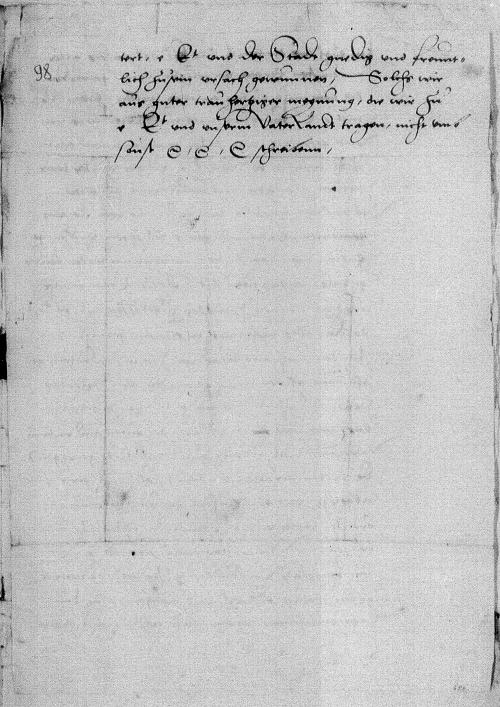 98
tert, e Et und der Stadt gnedig und freunt-
lich zu sein ursach gewunnen, Solchs wir
aus guter treuhertziger meynung, die wir zu
e Et und unserm Vaterlandt tragen, nicht
sonst schreibenn,